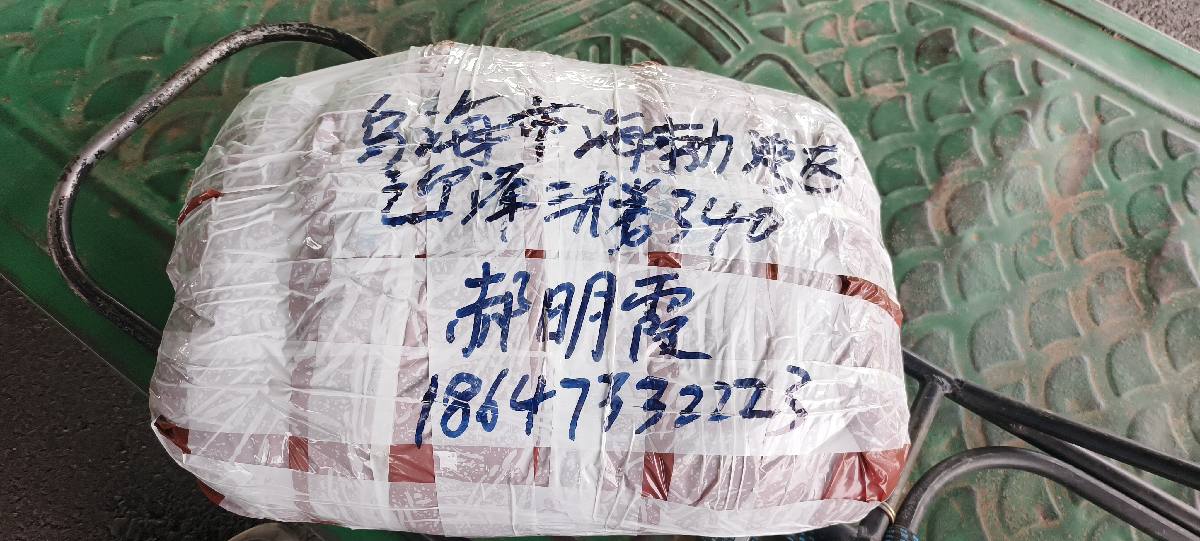 乌海市海勃湾区
江泽三楼340
郝明霞
18647332223